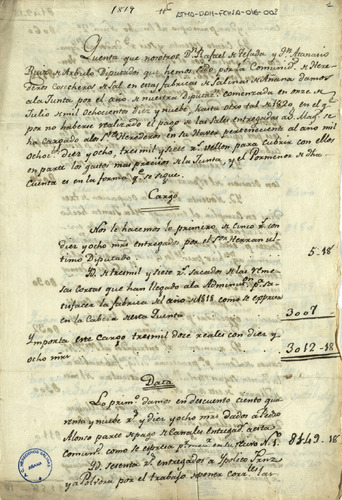 1819
ATHA-DAH-FCHVA-016-002
2
Quenta que nosotros Dn. Rafael de Tejada y Dn. Atanasio
Ruiz de Arbulo Diputados que hemos sido por la Comunid. de Here
deros Cosecheros de Sal en estas fabricas de Salinas de Añana damos
a la Junta por el año de nuestra Diputaz. comenzada en once de
Julio de mil ochocientos diez y nuebe, hasta otro tal de 1820 en el qe.
por no haberse realizado el pago de las Sales entregadas a S. Mag.e se
ha cargado a los Sres. Herederos en su Haver perteneciente al año mil
ochoc.s diez y ocho, tresmil y siete rs. vellon para cubrir con ellos
en parte los gastos mas precisos de la Junta, y el Pormenor de dha
Cuenta es en la forma qe. se sigue.
Cargo
Nos le hacemos lo primero de cinco rs. con
diez y ocho mrs entregados por el Sor. Herran ul
timo Diputado
5..18
Id. de tresmil y siete rs. sacados de las reme
sas cortas que han llegado a la Adminon. pa. sa
tisfacer la fabrica del año de 1818 como se espresa
en la Cabeza de esta Quenta
3007
Y importa este Cargo tresmil doce reales con diez y
ocho mrs
3012..18
Data
Lo primo. damos en descuento ciento qua
renta y nuebe rs. y diez y ocho mrs dados a Pedro
Alonso parte de pago de Canales entregad. a esta
Comunid. como se espresa pr. menor en su recivo N. 1
149..18
Id. sesenta rs. entregados a Ipolito Sanz
y a Isidora por el trabajo de poner corr. las